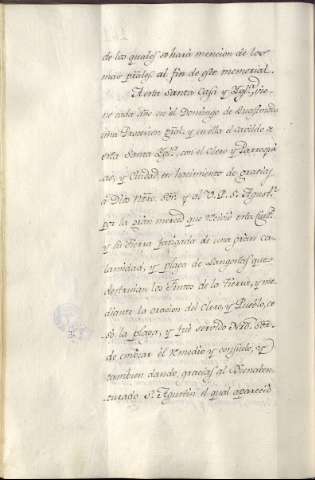 de los quales se hara mencion de los
mas prâles. al fin de este memorial.
A esta Santa Casa y Iglâ. vie-
ne cada año en el Domingo de Quasimodo
una Procesion gñal. y en ella el Cavildo de
esta Santa Iglâ. con el Clero y Parroqui
as, y Ciudad en hacimiento de gracias
à Dios Nrô. Sôr. y al G. P. Sn. Agustn.
por la gran merced que recivió esta Ciud.
y su tierra fatigada de una gran ca-
lamidad, y plaga de Langostas que
destruian los frutos de la tierra, y me
diante la oracion del Clero, y Pueblo, ce
só la plaga, y fué servido Ntrô. Sôr.
de embiar el remedio y consuelo, y
tambien dando gracias al Bienaven-
turado Sn. Agustin el qual apareció